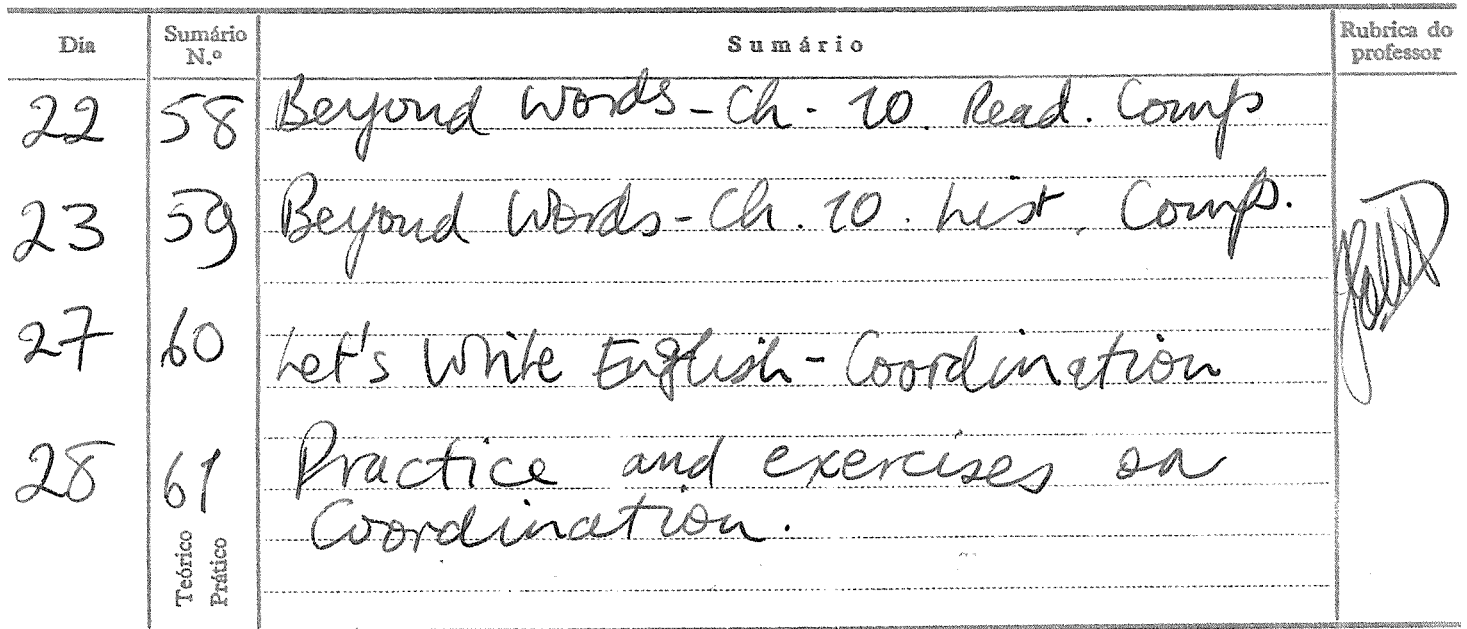 Dia Sumário N.º Sumário Rubrica do professor
22 58 Beyond Words - Ch. 10. Read. Comp
23 59 Beyond Words - Ch. 10. List. Comp.
27 60 Let's Write English - Coordination
28 61 Practice and exercises on
Coordination.
Teórico
Prático